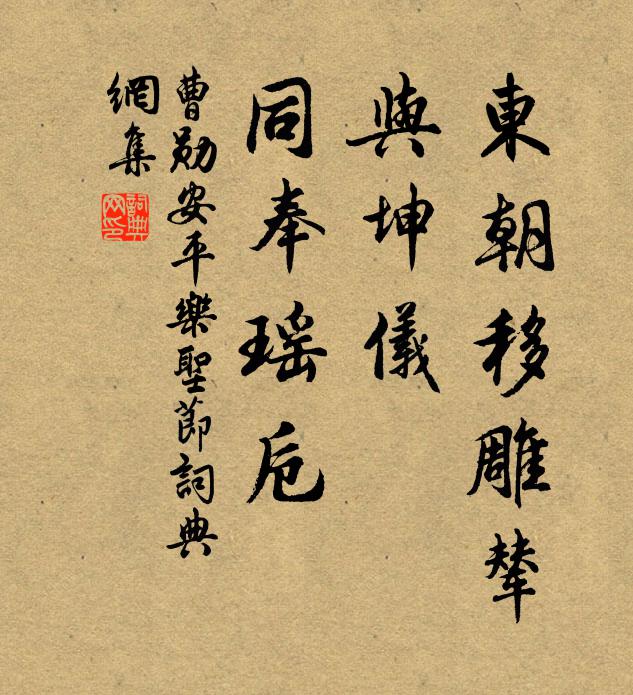 東朝移雕輦
與坤儀
同奉瑤卮
曹勛安平樂聖節詞典
網集
詞典
网印